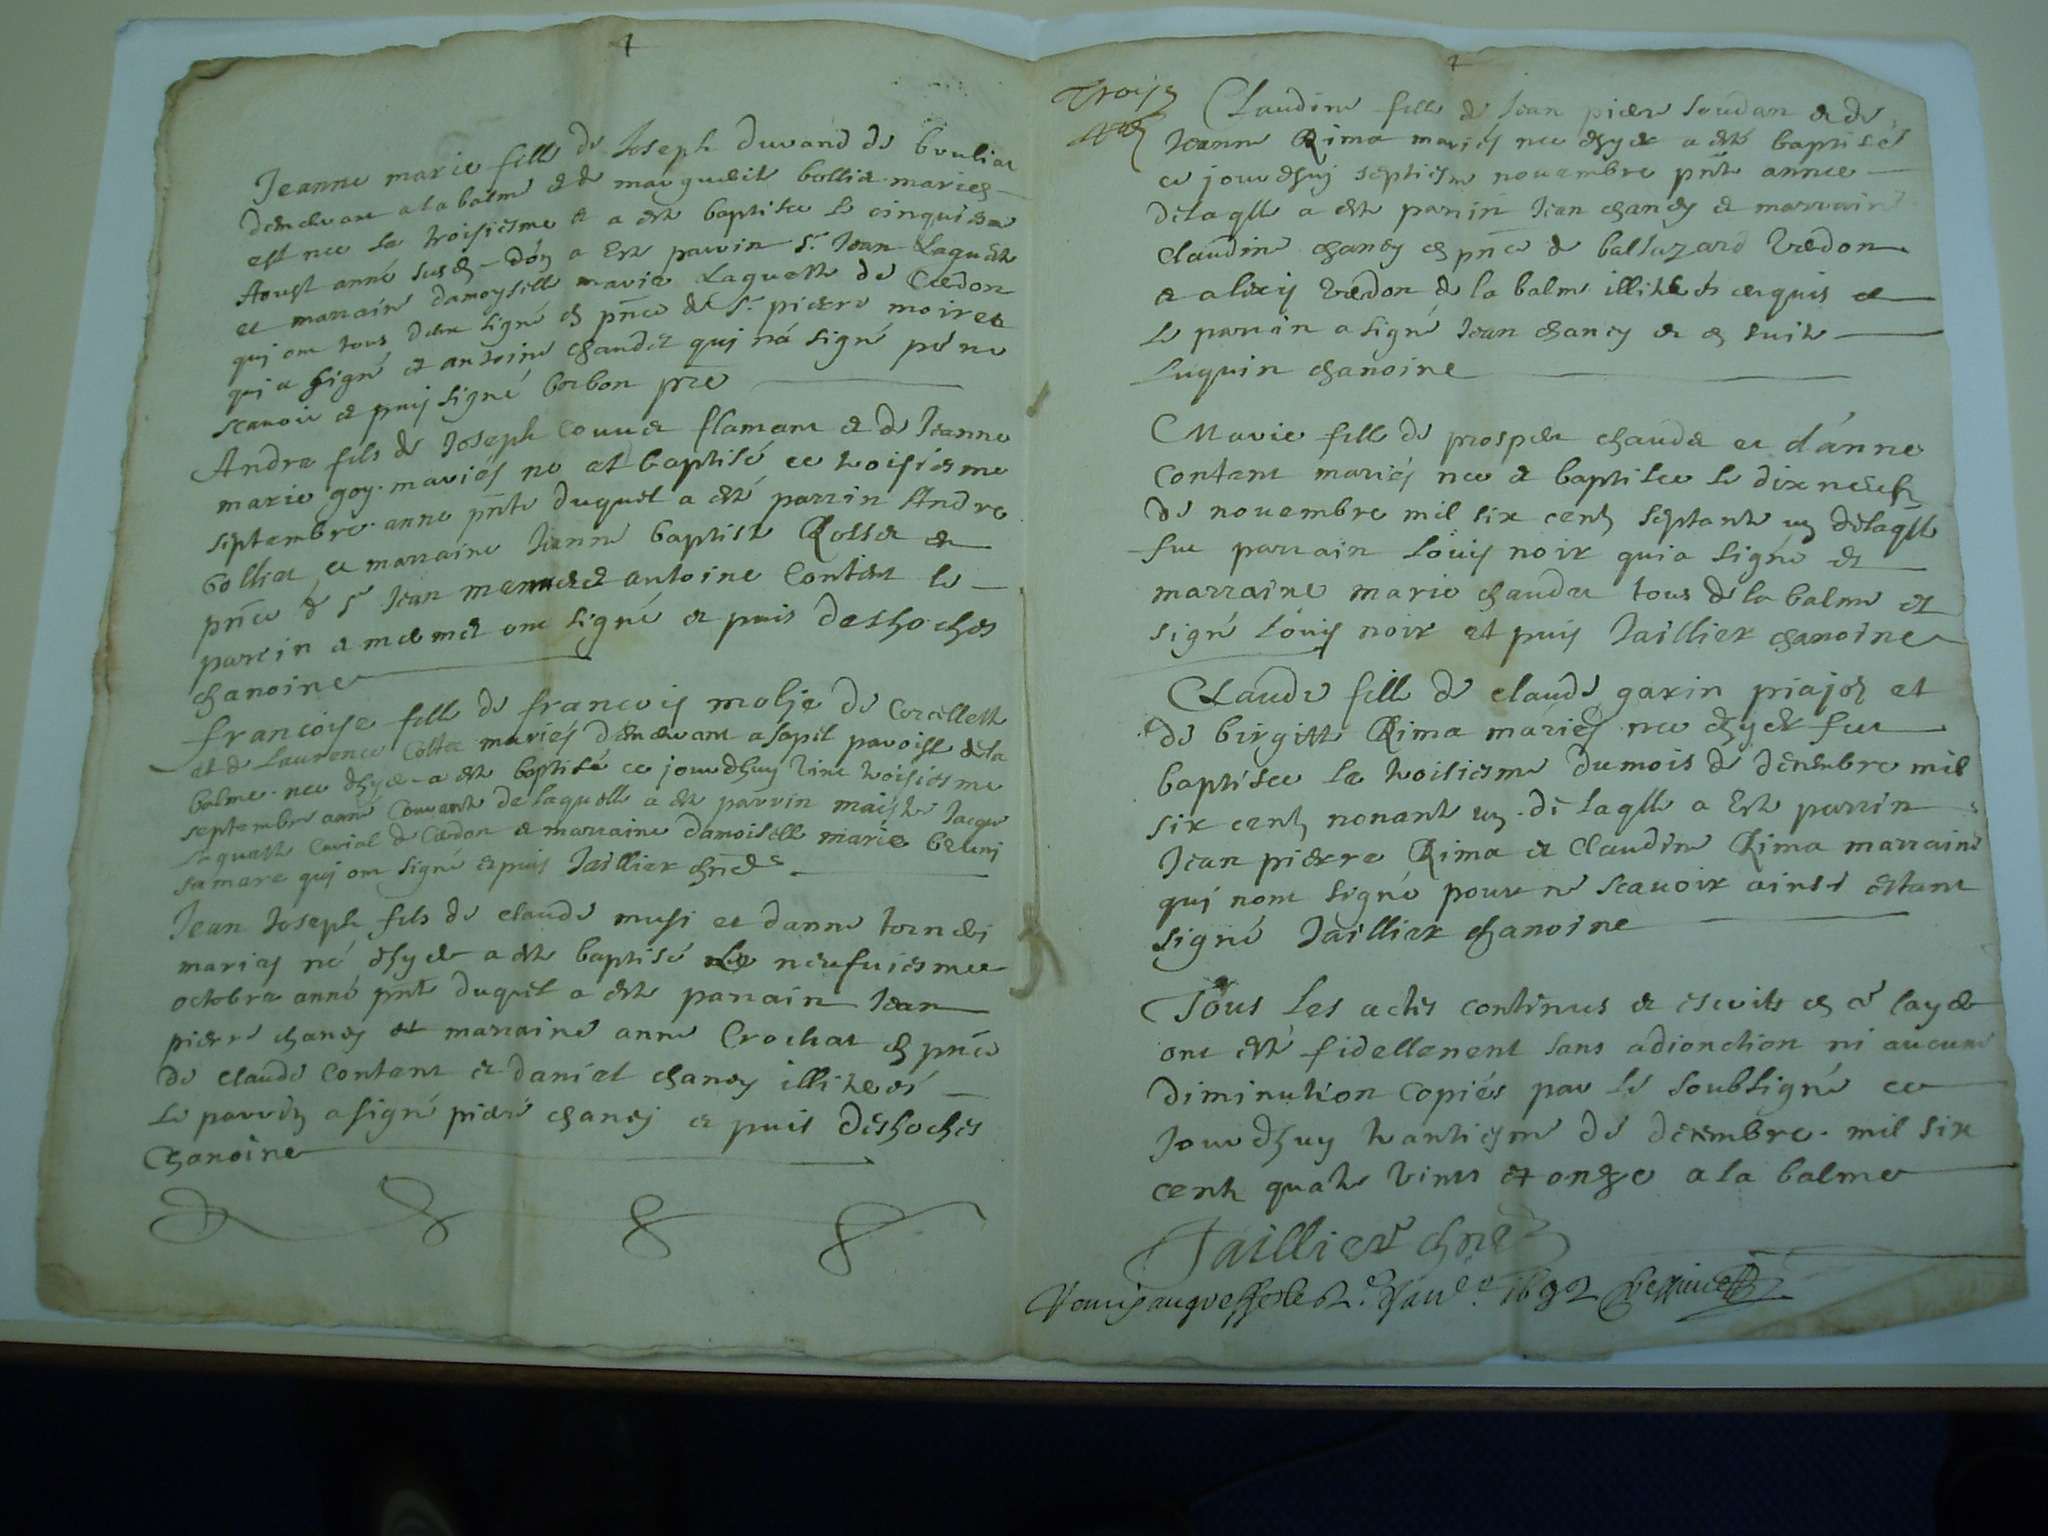 Jeanne marie fille de Joseph durand de
demeurant a la balme et de marguerite bollie mariez
est nee le troisiesme et a esté baptisee le cinquiesme
Aoust anné susd a esté parrin Sr Jean Laquest
et marraine damoyselle marie Laquette de Cerdon
qui ont tous deux signé en pnce de Sr pierre moiret
qui a signé et antoine chaudet qui n'a signé po ne
scavoir et puis signé borbon pre
Andre fils de Joseph Couuet flamant et de Jeanne
marie goy mariés ne et baptisé ce troisiesme
septembre anne pnte duquel a esté parrin Andre
bolliet et marraine Jeanne baptiste Rosset en
pnce de Sr Jean mermet et antoine Content le
parrin et mermet ont signé et puis deshoches
chanoine
francoise fille de francois molje de Corcellette
et de Laurence Collet mariés demeurant a sapel paroisse de la
balme nee hyer a esté baptisé ce jourdhuy vint troisiesme
septembre anné Courante de laquelle a esté parrin maistre Jacque
Laquette Curial de Cerdon et marraine damoiselle marie bruni
sa mare qui ont signé et puis Jaillier chne
Jean Joseph fils de claude musi et danne tornei
mariez né hyer a esté baptisé le neufuiesme
octobre anné pnte duquel a esté parrain Jean
pierre chaney et marraine anne Crochat en pnce
de claude Content et daniel chaney illiterés
le parrin a signé pierre chaney et puis deshoches
chanoine
Troise
Claudine fille de Jean pierre soudan et de
Jeanne Rima mariés nee hyer a esté baptisée
ce jourdhuy septiesme novembre pnte annee
de laqlle a esté parrin Jean chaney et marraine
Claudine chaney en pnce de baltazard Verdon
et alexis Verdon de la balme illiterés requis et
le parrin a signé Jean chaney et en suite
Luquin chanoine
Marie fille de prosper chaudet et d'anne
Content mariés nee et baptisee le dix neufe
de novembre mil six cent septante un de laqlle
fut parrain Louis noir qui a signé et
marraine marie chaudet tous de la balme et
signé Louis noir et puis Jaillier chanoine
Claude fille de claude garin et
de birgitte Rima mariés nee hyer fut
baptisee le troisiesme du mois de decembre mil
six cent nonante un de laqlle a esté parrin
Jean pierre Rima et Claudine Rima marraine
qui nont signé pour ne scavoir ainsi estant
signé Jaillier chanoine
Tous les actes contenus et escrits en ce cayer
ont esté fidellement sans adionction ni aucune
diminution copiés par le soubsigné ce
Jourdhuy trantiesme de decembre mil six
cent quatre vints et onze a la balme
Jaillier chne
Remis au greffe le 2e Janer 1692